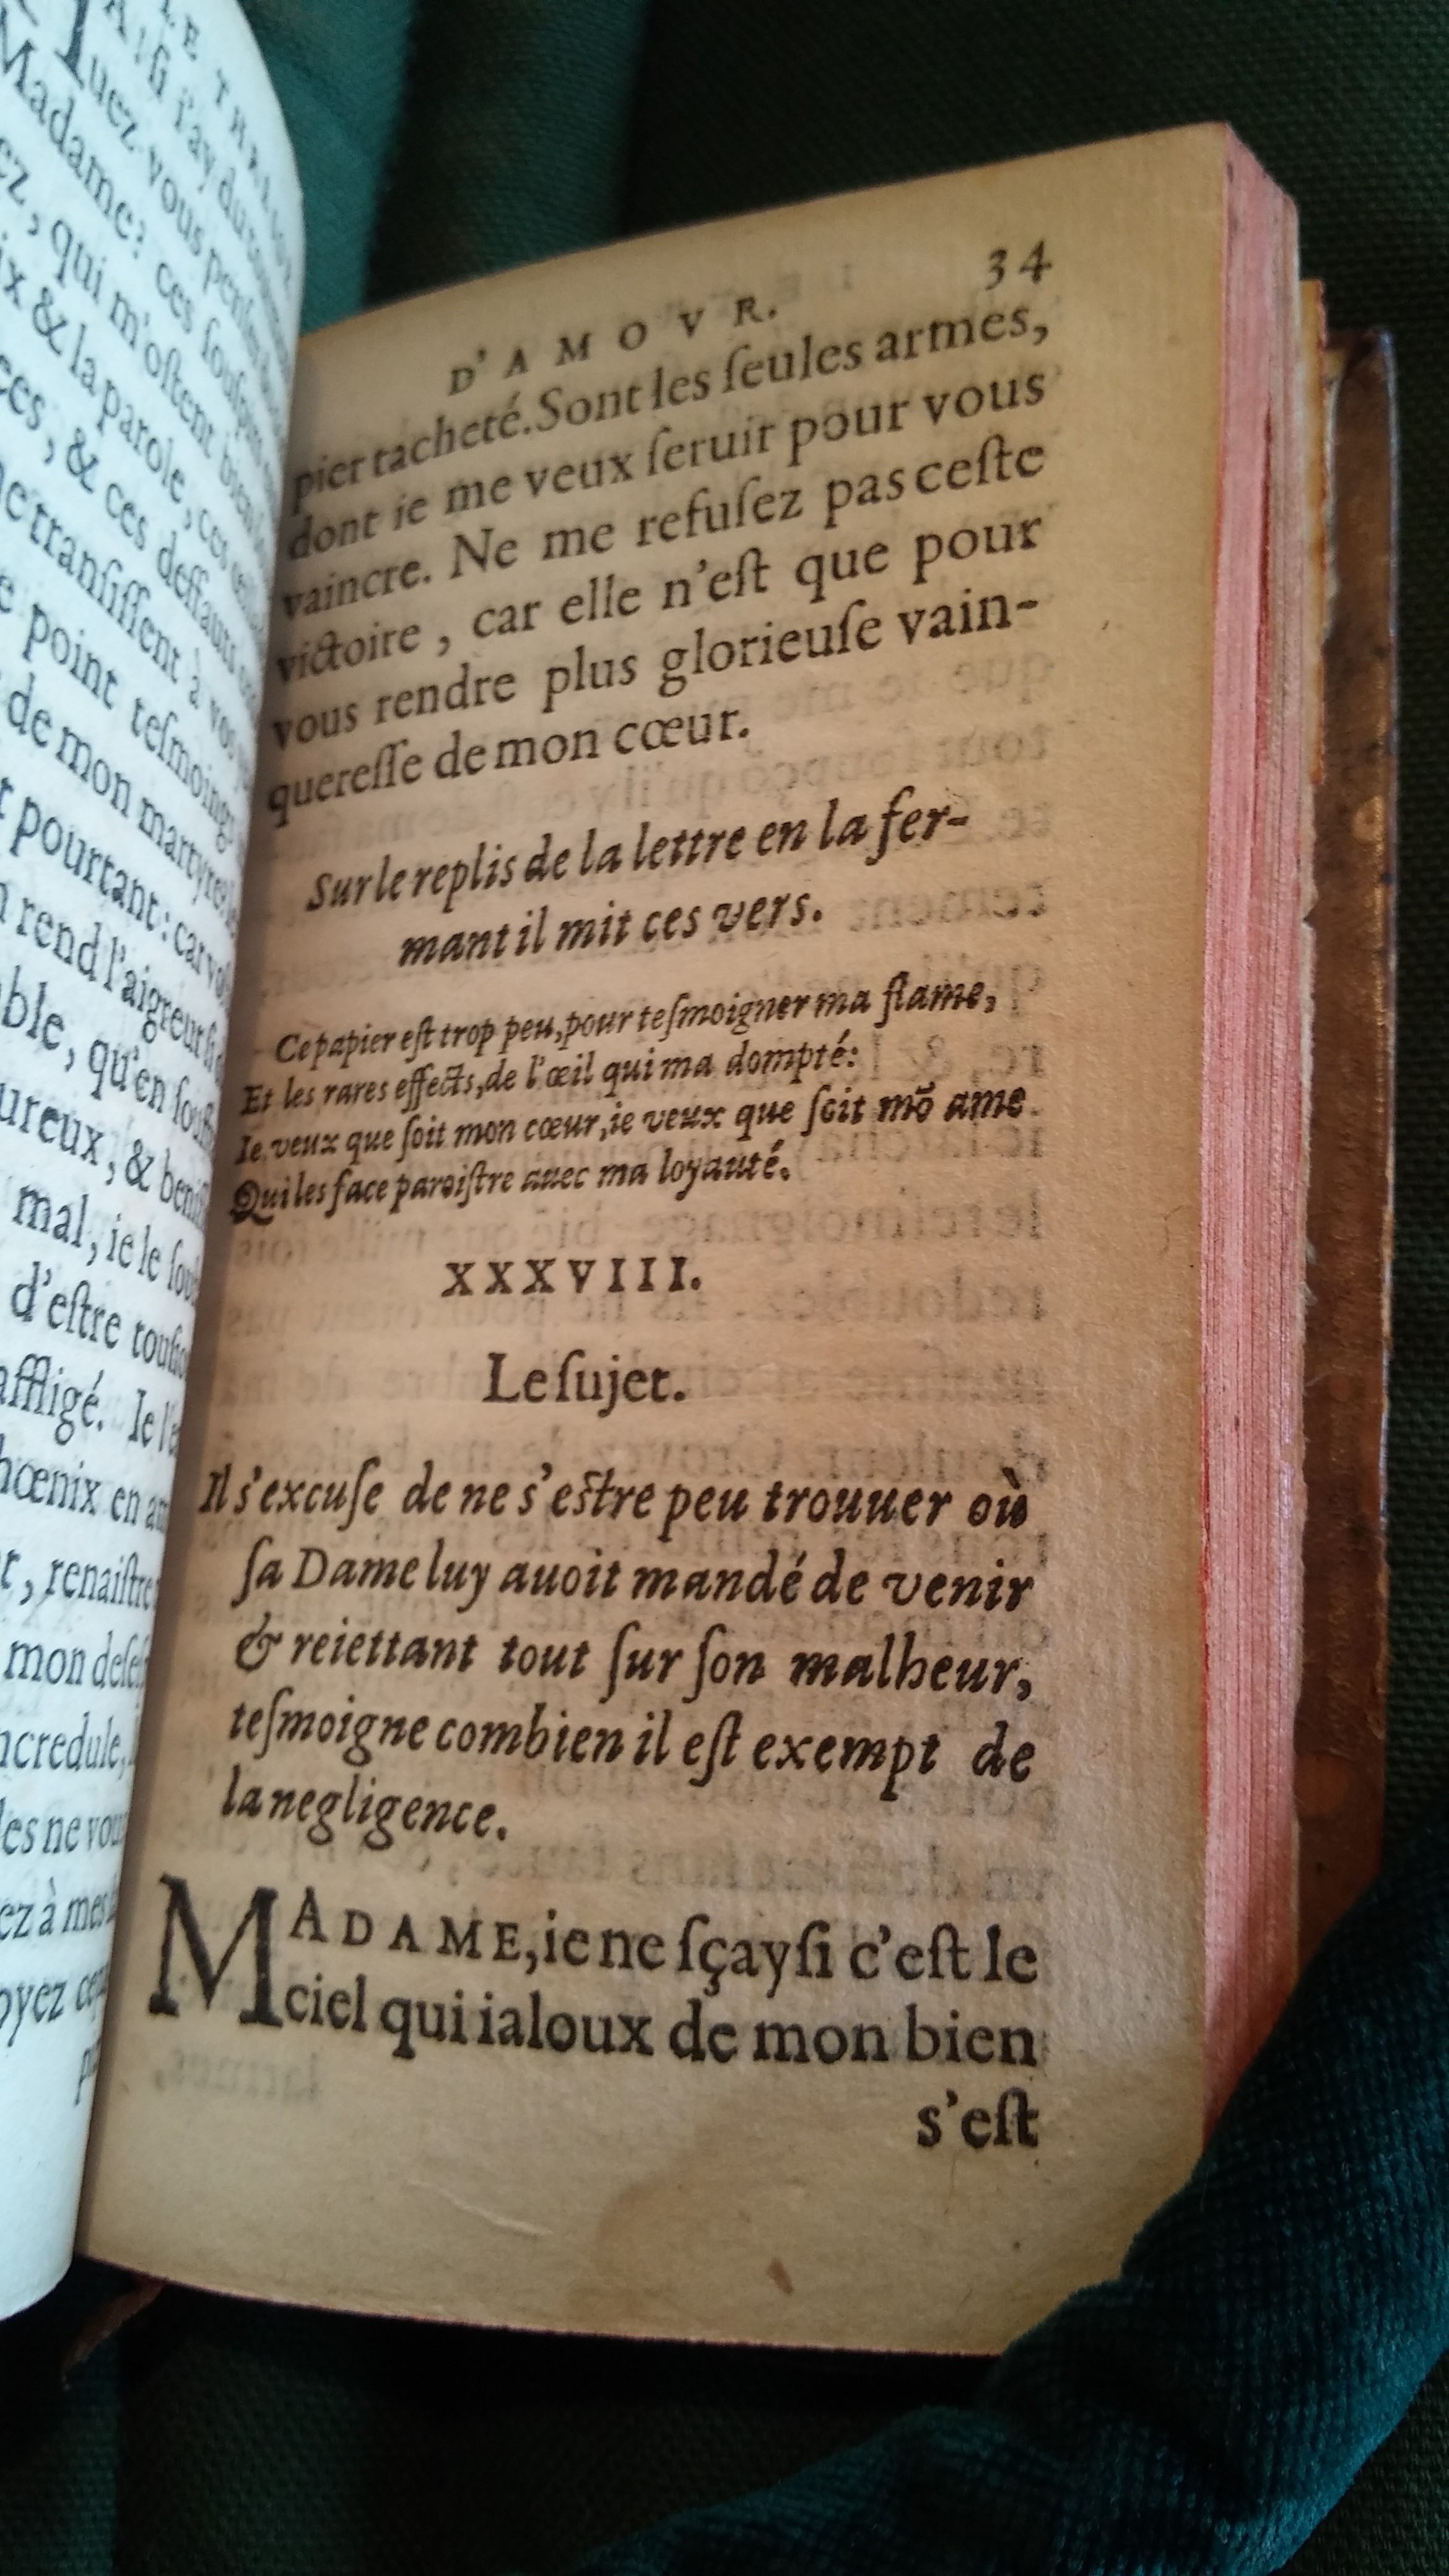 uez vous
Madame? ces
ez, qui m'oſtent bien
ix & la parole, ces
ces, & ces deffauts
tranſiſſent à vos
point teſmoings
de mon martyre
pourtant: car
rend l'aigreur
ble, qu'en
ureux, & 
mal, ie le
d'eſtre
affligé. Ie
hœnix en
, renaiſtre
mon
ncredule,
les ne
ez à mes
oyez
D'AMOVR. 34
pier tacheté. Sont les ſeules armes,
dont ie me veux ſeruir pour vous
vaincre. Ne me refuſez pas ceſte
victoire, car elle n'eſt que pour
vous rendre plus glorieuſe vain-
quereſſe de mon cœur.
Sur le replis de la lettre en la fer-
mant il mit ces vers.
Ce papier eſt trop peu, pour teſmoigner ma flame,
Et les rares effects, de l'œil qui ma dompté:
Ie veux que ſoit mon cœur, ie veux que ſoit mõ ame
Qui les face paroiſtre auec ma loyauté.
XXXVIII.
Le ſujet.
Il s'excuſe de ne s'eſtre peu trouuer où
ſa Dame luy auoit mandé de venir
& reiettant tout ſur ſon malheur,
teſmoigne combien il eſt exempt de
la negligence.
MADAME, ie ne ſçay ſi c'eſt le
ciel qui ialoux de mon bien
s'eſt